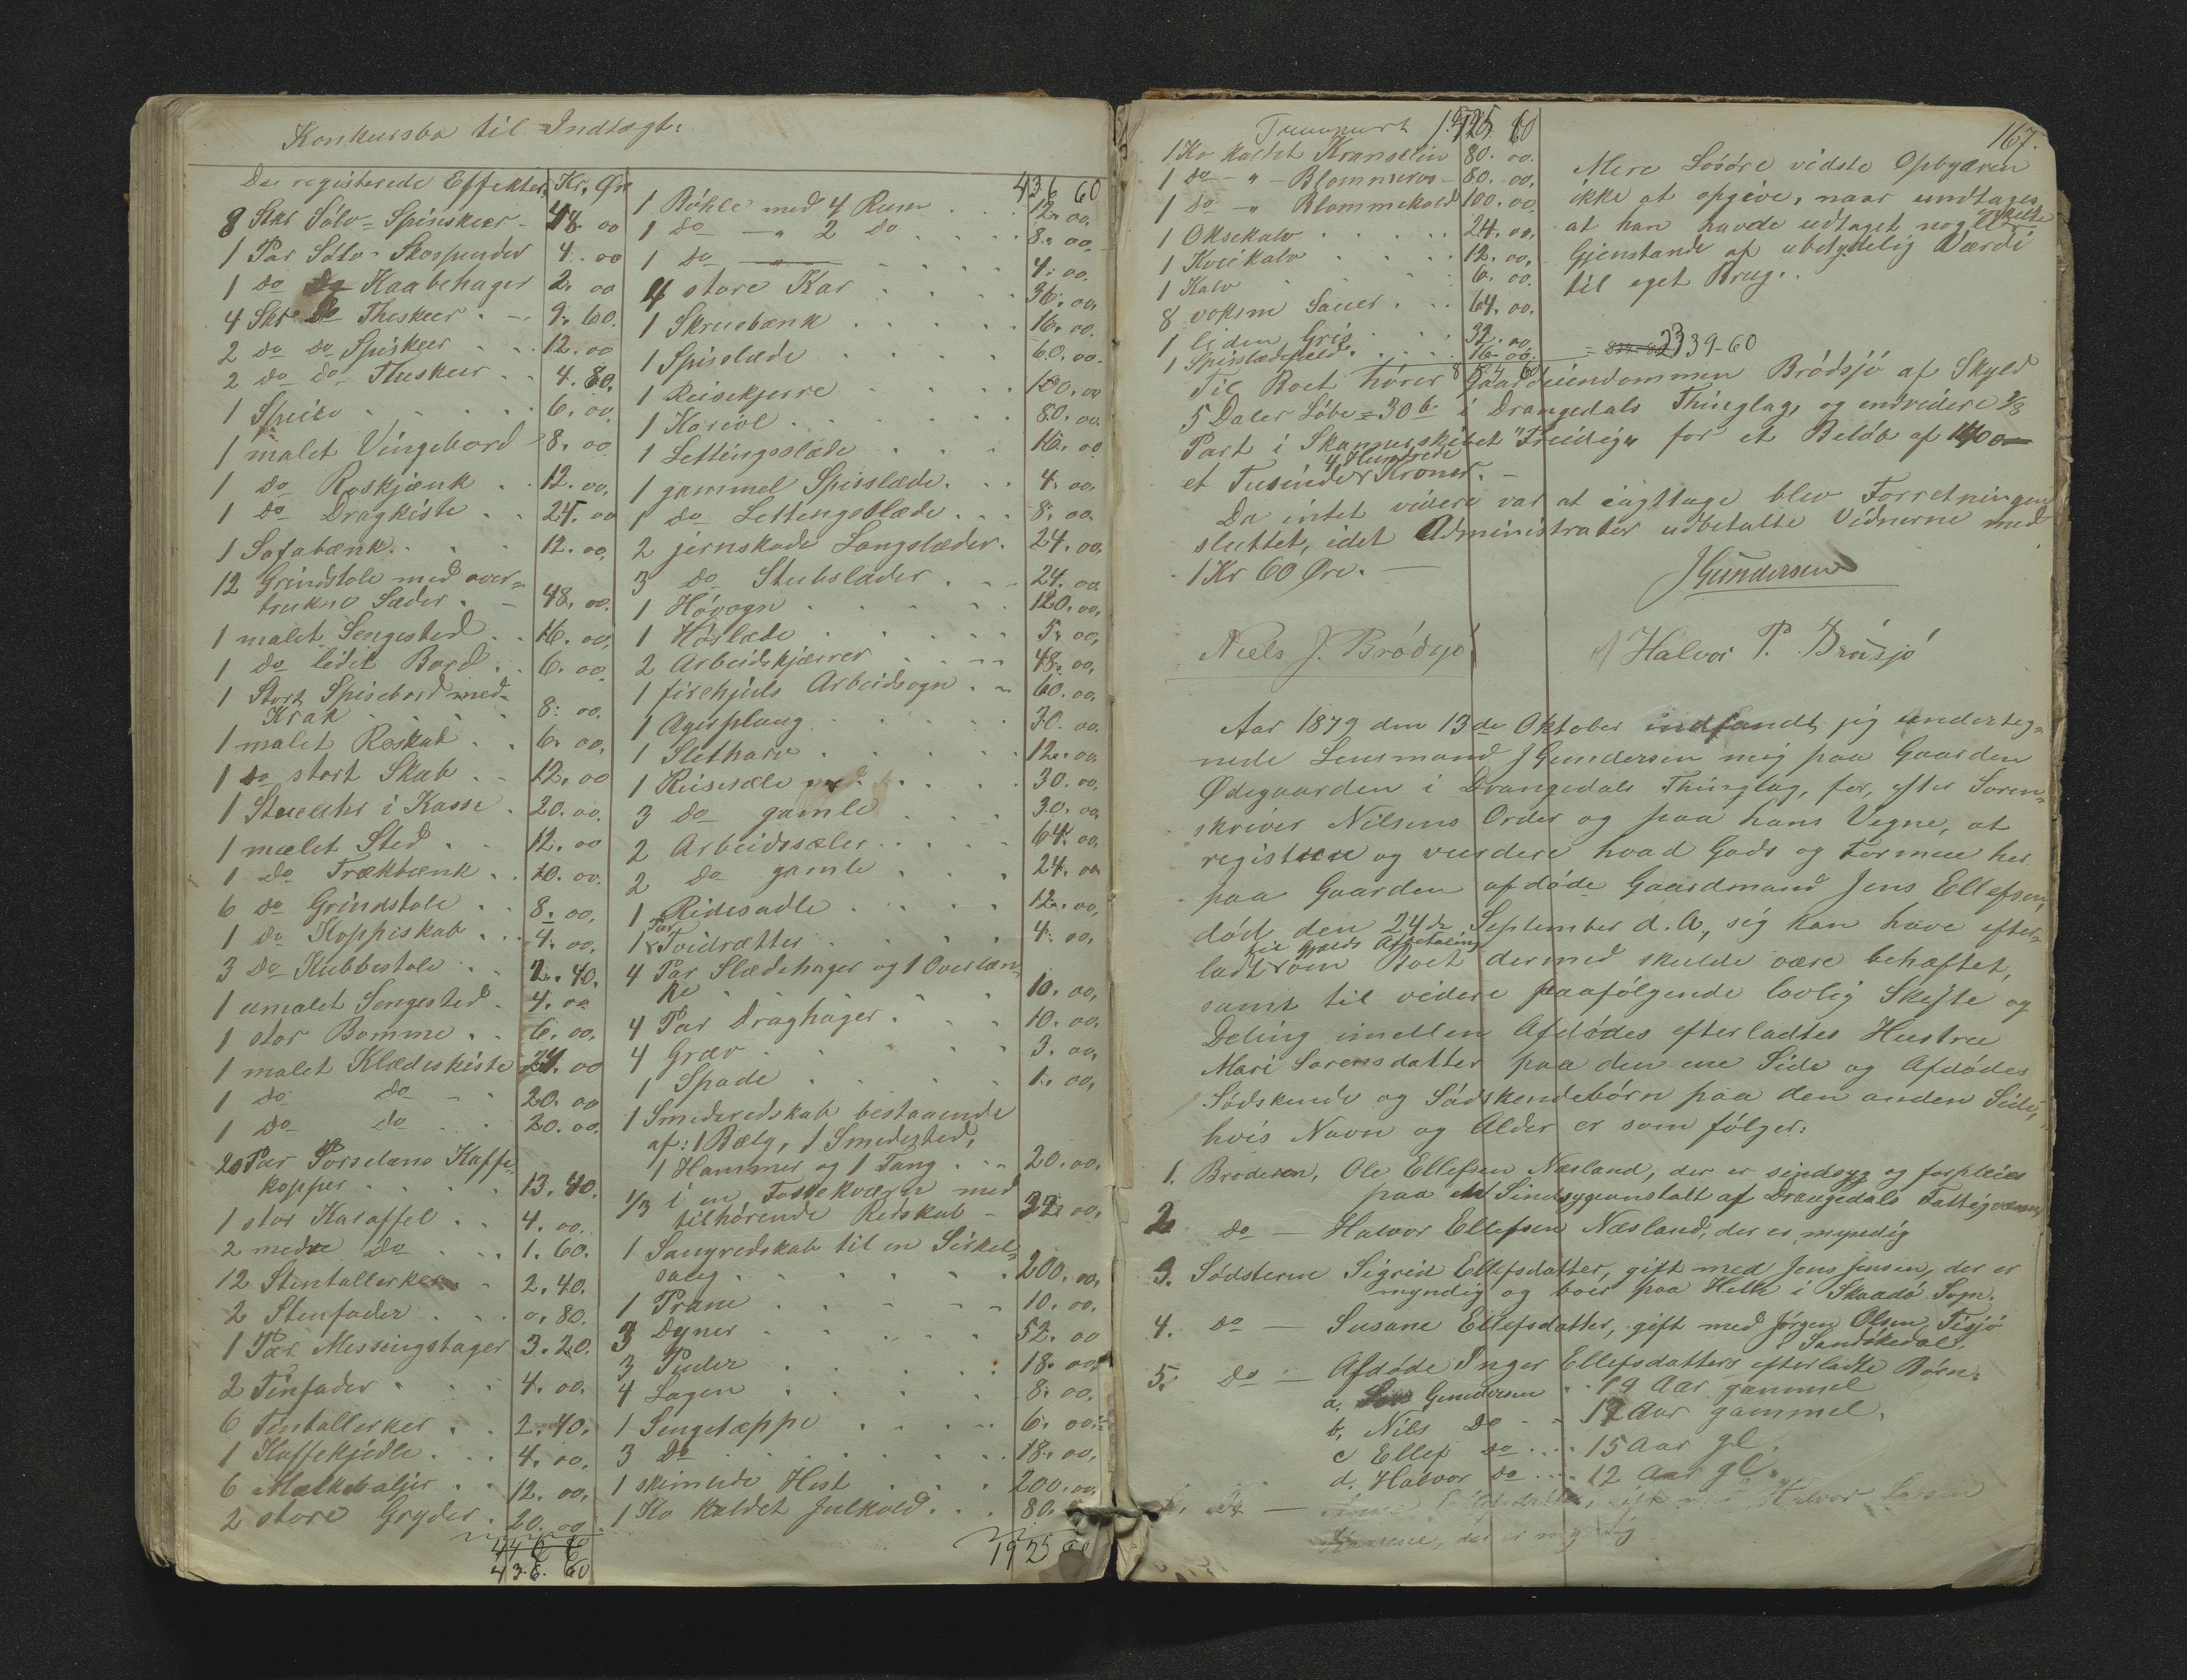 Konkursbo til Indtægt:
De registerede Effekter. Kr. Ør
8 Stkr Sölv-Spiseskeer - 48. 00
1 Par Sölv-Skospender 4. 00
1 do do Kaabehager 2. 00
4 Stkr do Theskeer . - 9. 60.
2 do do Spiskeer . . 12. 00
2 do do Theskeer . . 4. 80.
1 Speile . . . . 6. 00.
1 malet Vingebord - 8. 00
1 do Roskjænk . . 12. 00.
1 do Dragkiste . . 24. 00
1 Sofabænk . . . 12. 00.
12 Grindstole med over-
trukne Sæder . - 48. 00.
1 malet Sengested . . 16. 00.
1 do lidit Bord . . 6. 00.
1 Stort Spisebord med
Krak . . . . 8. 00.
1 malet Roskab . . 6. 00.
1 do stort Skab . - 12. 00
1 Stueuhr i Kasse . 20. 00.
1 malet Sted . . 12. 00
1 do Trækbænk . . 10. 00.
6 do Grindstole . . 8. 00.
1 do Koppiskab . . . 4. 00.
3 do Kubbestole . . 2. 40.
1 umalet Sengested . 4. 00
1 stor Bomme . . 6. 00.
1 malet Klædeskiste 24. 00
1 do do - . 20. 00
1 do do . . 20. 00.
20 Par Porselæns Kaffe-
kopper . . . . 13. 40.
1 stor Karaffel . . 4. 00.
2 medre do . . . 1. 60.
12 Stentallerker . . 2. 40.
2 Stenfader . . . 0. 80.
1 Par Messingstager 3. 20.
2 Tinfader . . . 4. 00.
6 Tintallerker . . 2. 40.
1 Kaffekjedle . . . 4. 00.
6 Mælkebaljer . . 12. 00.
2 store Gryder . 20. 00.
436. 60
436 60
1 Böhle med 4 Rum . . . 12. 00.
1 do - " 2 do . . . . 8. 00.
1 do - " - . . . . 4. 00.
4 store Kar . . . . 36. 00.
1 Skruebænk . . . . . 16. 00.
1 Spislæde . . . . . 60. 00.
1 Reisekjerre . . . . 100. 00
1 Kariol . . . . . 80. 00.
1 Lettingslæde . . . 16. 00
1 gammel Spisslæde . . . 4. 00.
1 do Lettengslæde . . . 8. 00.
2 jernskode Langslæder . 24. 00.
3 do Stubslæder . . . 24. 00
1 Hövogn . . . . . 120. 00.
1 Höslæde . . . . . 5. 00.
2 Arbeidskjærrer . . - - 48. 00.
1 firehjuls Arbeidsvogn . - 60. 00.
1 Agerploug . . . . . 30. 00.
1 Sletharv . . . . . 12. 00
1 Reisesæle . . . . 30. 00.
3 do gamle . . . 30. 00.
2 Arbeidssæler . . . . 64. 00.
2 do gamle . . . 24. 00
1 Ridesadle . . . . 12. 00.
1 Par Tvidrætter . . . . 4. 00.
4 Par Slædehager og 1 Overlæn-
ke . . . . . 10. 00.
4 Par Draghager . . . 10. 00.
4 Græv . . . . . 3. 00.
1 Spade . . . . . 1. 00.
1 Smederedskab bestaaende
af: 1 Bælg, 1 Smedested,
1 Hammer og 1 Tang . . - 20. 00.
1/3 i en Fossekværn med
tilhörende Redskab - 32. 00.
1 Saugredskab til en Sirkel-
saug . . . . . 200. 00.
1 Pram . . . . . 10. 00.
3 Dyner . . . . . 52. 00
3 Puder . . . . . 18. 00.
4 Lagen . . . . . 8. 00.
1 Sengetæppe . . . . 6. 00.
3 do . . . . . 18. 00.
1 skimlede Hest . . . 200. 00.
1 Ko kaldet Julkold . . . 80.
1925 60
167.
Transport 1925 60
1 Ko kaldet Kranselin 80. 00.
1 do - " - Blommeros - 80. 00.
1 do - " Blommekold 100. 00.
1 Oksekalv . . . . 24. 00.
1 Kveikalv . . . 12. 00.
1 Kalv . . . . 6. 00.
8 voksne Sauer . . . 64. 00.
1 liden Gris . . . 32. 00.
1 Spisslædefeld . . . 16. 00.
Mere Lösöre vidste Opbyderen
ikke at opgive, naar undtages,
at han havde udtaget nogle enkelte
Gjenstande af ubetydelig Værdi
til eget Brug..
= 2339-60
Til Boet hörer Gaardeiendommen Brödsjö af Skyld
5 Daler Löbe = 30 b i Drangedals Thinglag, og endvidere 2/3
Part i Skonnerskibet "Freidig" for et Beløb af 1400-
et Tusinde 4 Hundrede Kroner. -
Da intet videre var at iagttage blev Forretningen
sluttet, idet Administrator udbetalte Vidnerne med
1 Kr 60 Øre. -
J Gundersen
Niels J. Brödsjö
Halvor P. Bråsjö
Aar 1879 den 13de Oktober indfandt jeg underteg-
nede Lensmand J Gundersen mig paa Gaarden
Ødegaarden i Drangedals Thinglag, for, efter Soren-
skriver Nilsens Order og paa hans Vegne, at
registrere og vurdere hvad Gods og Formue her
paa Gaarden afdøde Gaardmand Jens Ellefsen,
död den 24de September d. A., sig kan have efter-
ladt til Gjælds Afbetaling som Boet dermed skulde være behæftet,
samt til videre paafölgende lovlig Skifte og
Deling imellem Afdødes efterladtes Hustru
Mari Sorensdatter paa den ene Side og Afdødes
Södskende og Södskendebörn paa den anden Side,
hvis Navn og Alder er som fölger:
1. Broderen, Ole Ellefsen Næsland, der er sindsyg og forpleies
paa en Sindsygeanstalt af Drangedals Fattigvæsen
2 do - Halvor Ellefsen Næsland, der er myndig
3. Södsteren Sigrid Ellefsdatter, gift med Jens Jensen, der er
myndig og boer paa Helle i Skaadö Sogn.
4. do - Susane Ellefsdatter, gift med Jörgen Olsen, Tisjö
i Sandökedal.
5. do - Afdøde Inger Ellefsdatters efterladte Børn:
a. Gundersen . . 19 Aar gammel
b. Nils do - - 17 Aar gammel.
c Ellef do . . . 15 Aar gl.
d. Halvor do . . . 12 Aar gl.
do - Ellefsdatter, gift med Halvor
der er myndig